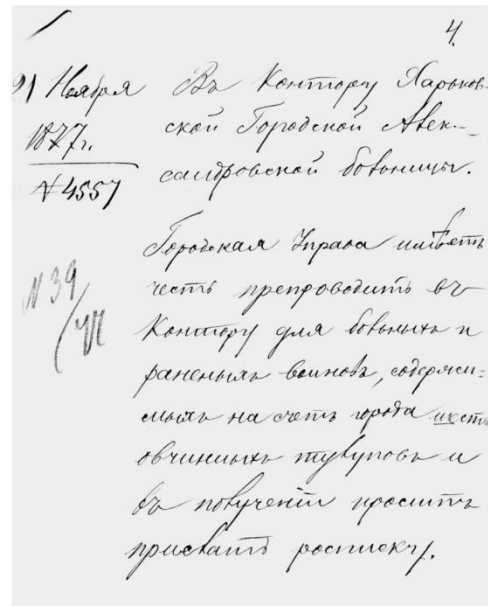 4.
21 Ноября
1877 г.
№ 4557
№ 39
Въ Контору Харьков-
ской Городской Алек-
сандровской больницы.
Городская Управа имѣетъ
честь препроводить въ
Контору для больныхъ и
раненыхъ воиновъ, содержи=
мыхъ на счетъ города шесть
овчинныхъ тулуповъ и
въ полученіи проситъ
прислать росписку.